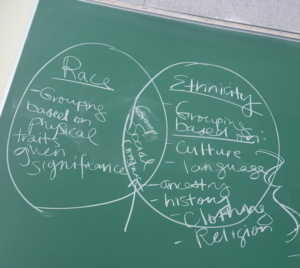 Race
- Grouping
based on
physical
traits
given
significance
Group
Social
Ethnicity
- Grouping
based on:
- Culture
- language
- ancestry
- history
- Clothing
- Religion